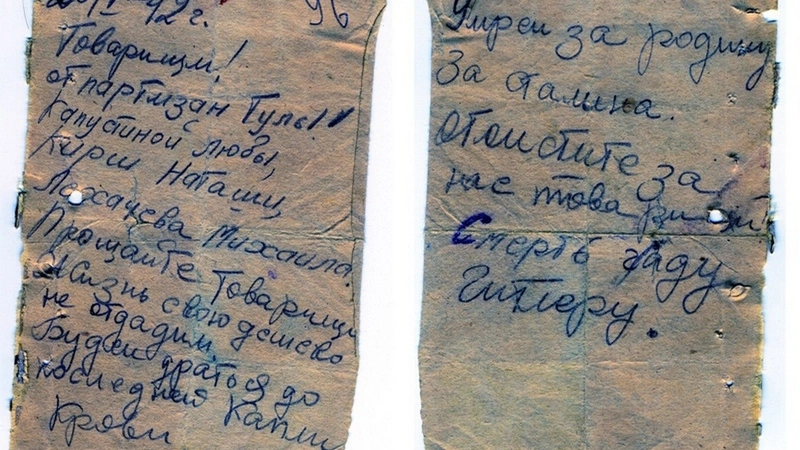 42г. 96
Товарищи!
от партизан Тулы!
Капустиной Любы,
Кирш Наташи,
Лахачева Михаила.
Прощайте товарищи
Жизнь свою дешево
не отдадим.
Будем драться до
последней Капли
Крови
Умрем за родину
За Сталина.
отомстите за
нас товарищи
Смерть гаду
Гитлеру.